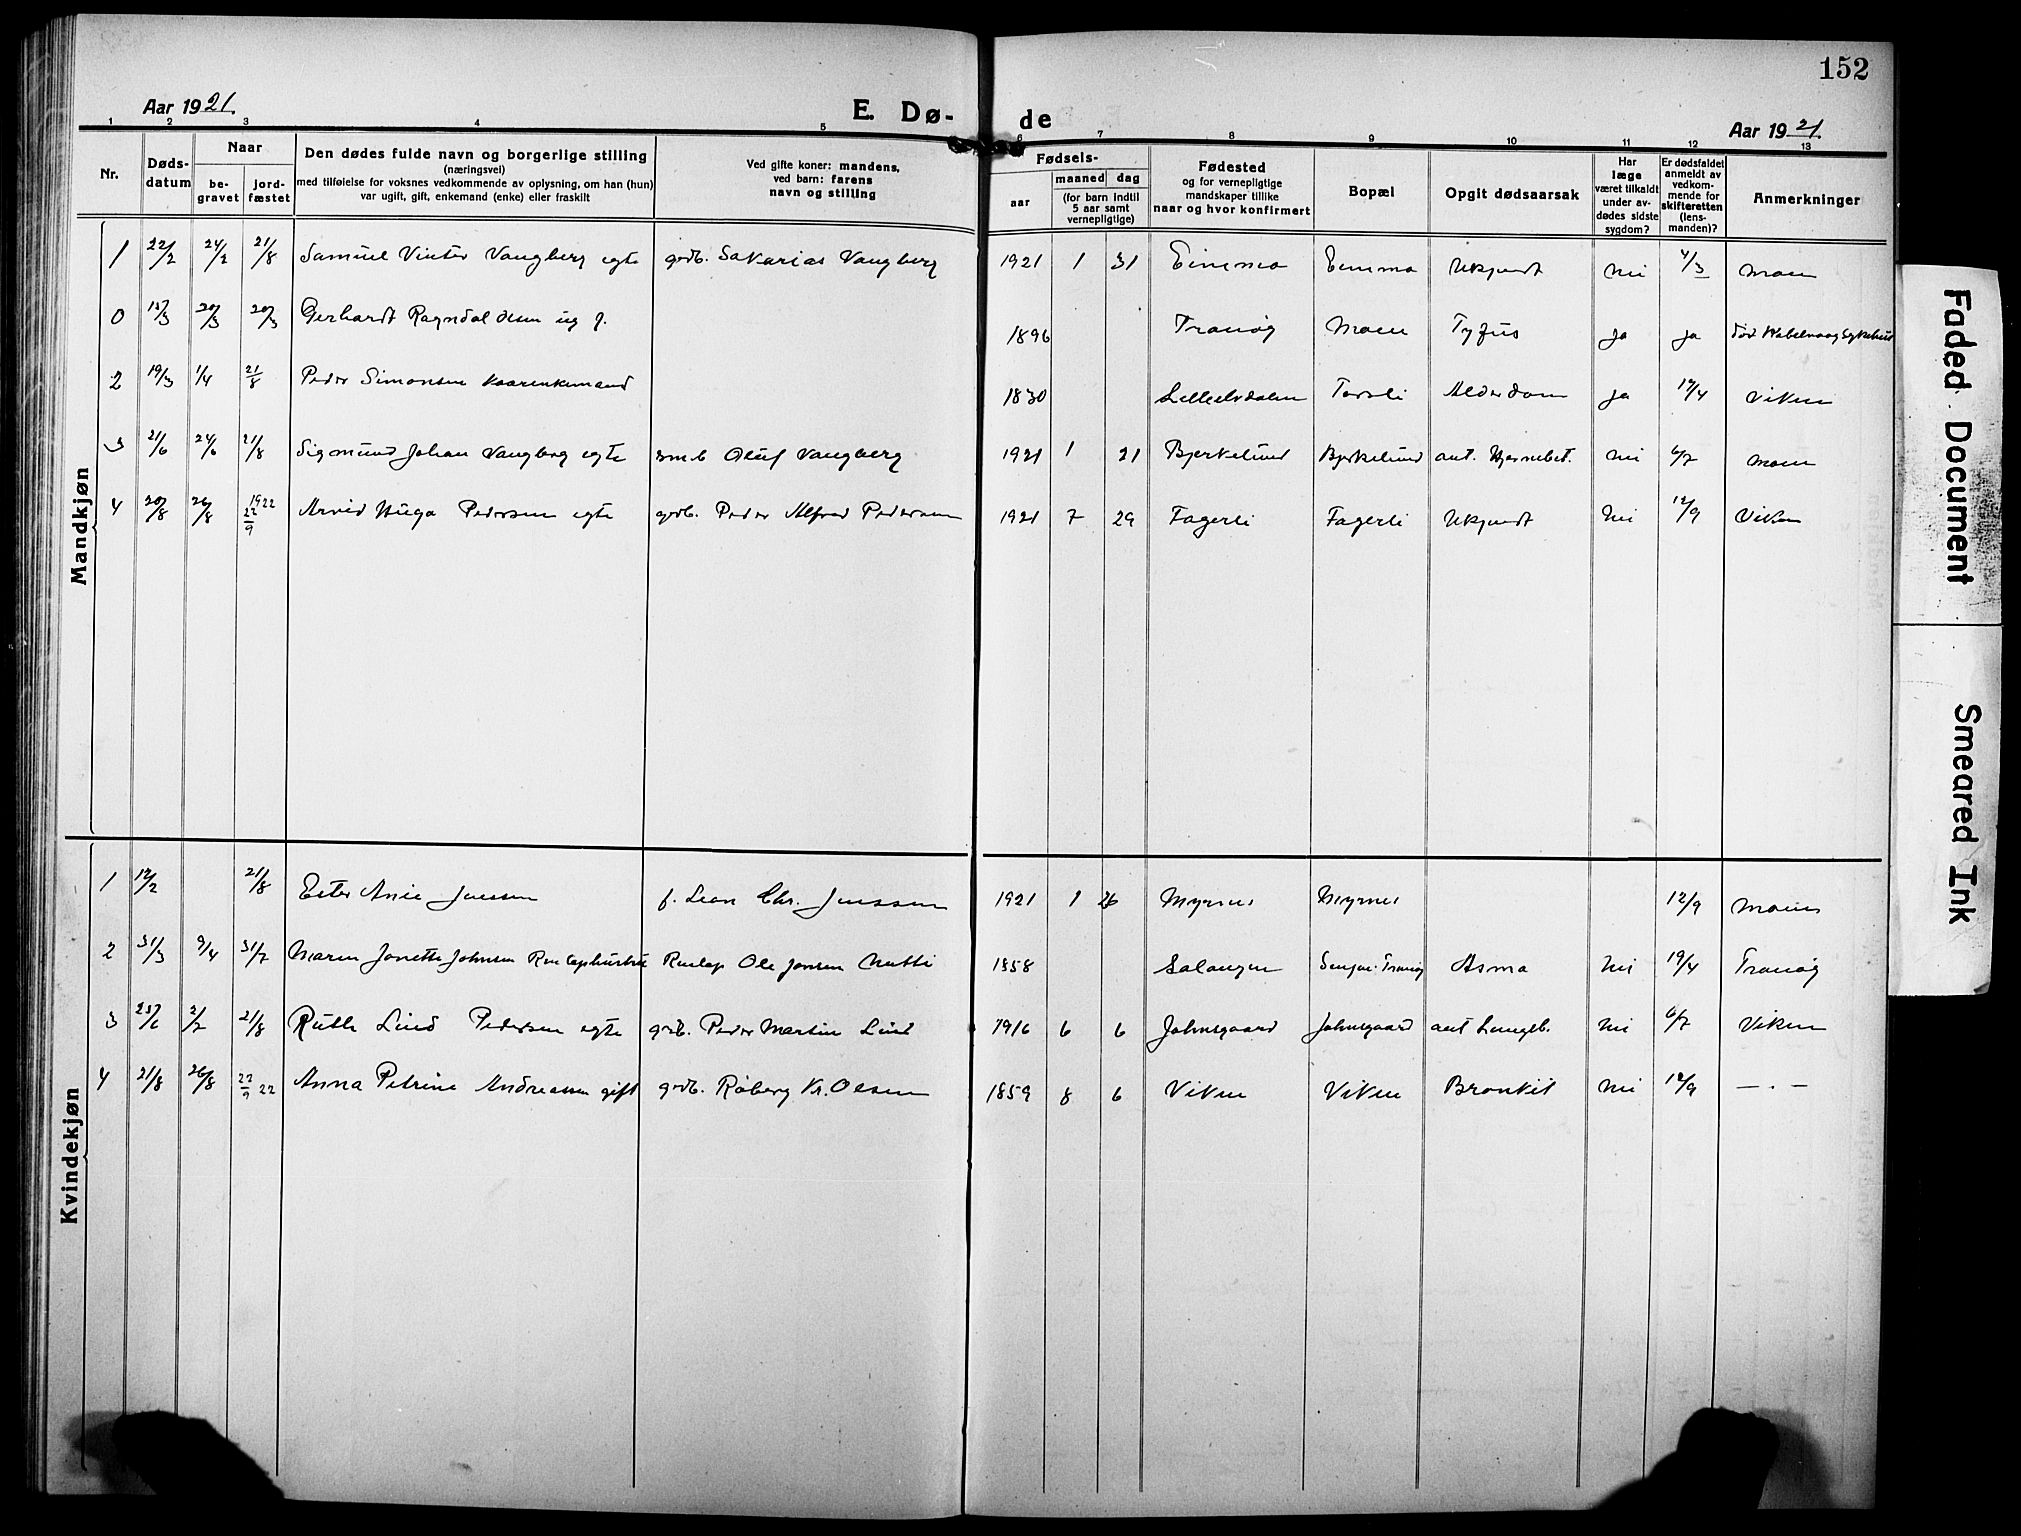 152
Aar 1921.
E. Dø-
de
Aar 1921.
1 2 3 4 5 6 7 8 9 10 11 12 13
Nr.
Døds-
datum
Naar
be-
gravet
jord-
fæstet
Den dødes fulde navn og borgerlige stilling
(næringsvei)
med tilføielse for voksnes vedkommende av oplysning, om han (hun)
var ugift, gift, enkemand (enke) eller fraskilt
Ved gifte koner: mandens,
ved barn: farens
navn og stilling
Fødsels-
aar
maaned dag
(for barn indtil
5 aar samt
vernepligtige)
Fødested
og for vernepligtige
mandskaper tillike
naar og hvor konfirmert
Bopæl
Opgit dødsaarsak
Har
læge
været tilkaldt
under av-
dødes sidste
sygdom?
Er dødsfaldet
anmeldt av
vedkom-
mende for
skifteretten
(lens-
manden)?
Anmerkninger
Mandkjøn
1 22/2 24/2 21/8 Samuel Vinter Vangberg egte grdb. Sakarias Vangberg 1921 1 31 Eimmo Eimmo Ukjendt nei 4/3 Moen
0 20/3 20/3 Gerhardt Ragndal Olsen ug f. 1896 Tranøy Moen Tyfus ja ja død Kabelvaag Sykehus
2 19/3 1/4 21/8 Peder Simonsen 1830 Torsli Alderdom ja 12/4 Viken
3 21/6 24/6 21/8 Sigmund Johan Vangberg egte Oluf Vangberg 1921 1 21 Bjerkelund Bjerkelund ant. nei 6/7 Moen
4 20/8 26/8 1922 22/9 Arvid Hugo Pedersen egte grdb. Peder Alfred Pedersen 1921 7 29 Fagerli Fagerli Ukjendt nei 12/9 Viken
Kvindekjøn
1 12/2 21/8 Ester Anie Jenssen f. Leon Chr. Jenssen 1921 1 26 Myrnes Myrnes 12/9 Moen
2 31/3 9/4 31/7 Maren Janette Johnsen Ruslap Ole Jonsen Nutti 1858 Salangen Senjen-Tranøy Asma nei 19/4 Tranøy
3 25/6 2/7 21/8 Ruth Lind Pedersen egte grdb. Peder Martin Lind 1916 6 6 Johnsgaard Johnsgaard ant Lungeb. nei 6/7 Viken
4 21/8 26/8 22/9 22 Anna Petrine Andreassen gift grdb. Røberg Kr. Olsen 1859 8 6 Viken Viken Bronkit nei 12/9 — . —
Faded Document
Smeared Ink